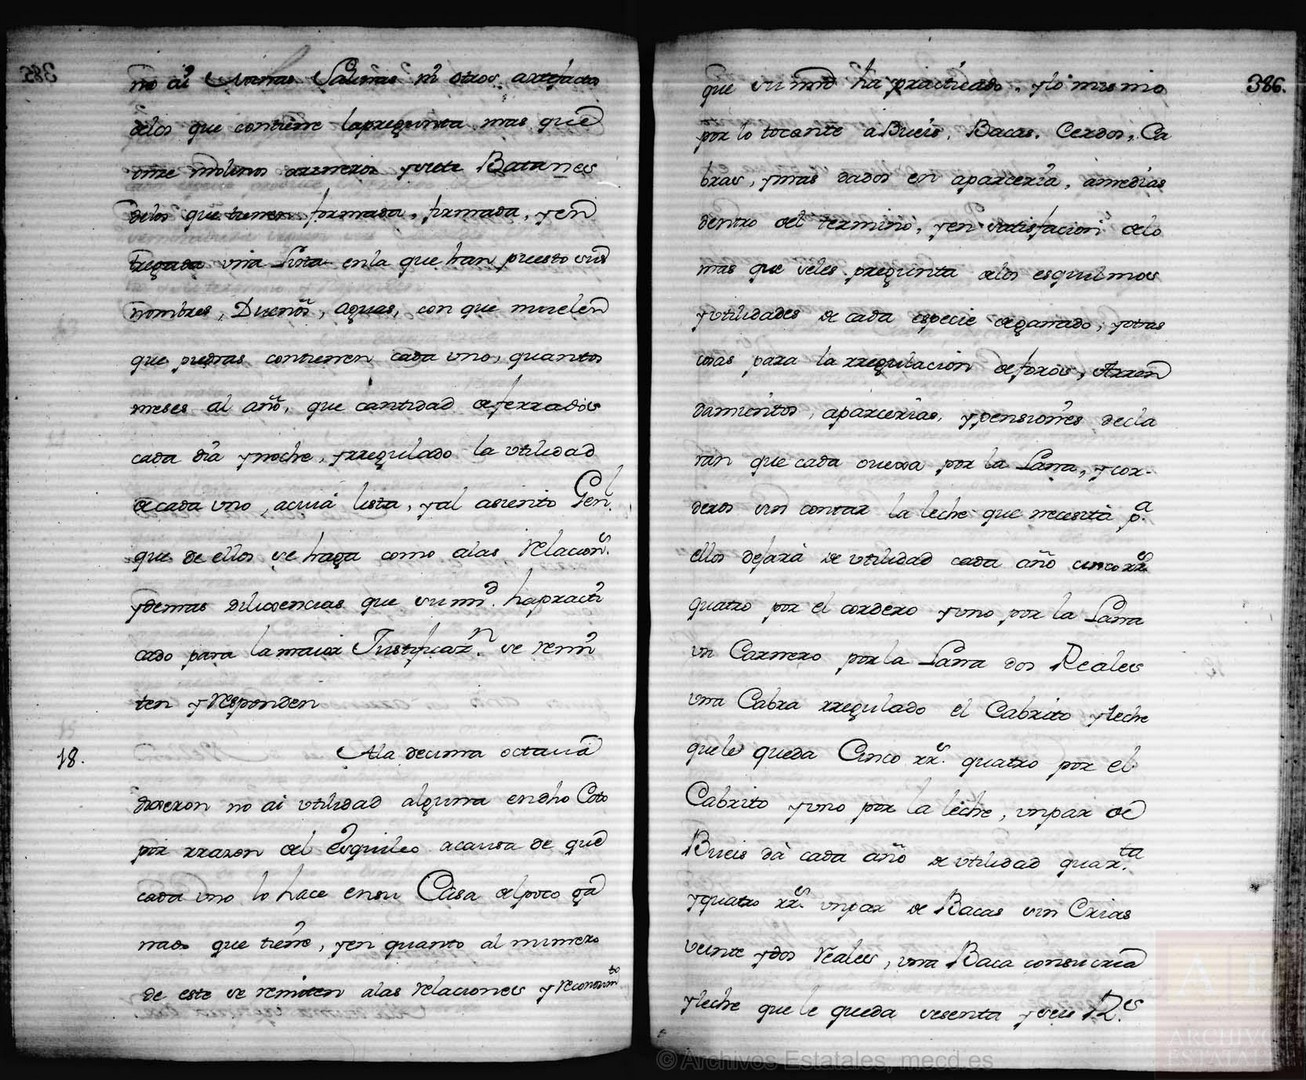 no ai Minas Salinas ni otros artefactos
delos que contiene lapregunta mas que
onze molinos arineros ysiete Batanes
delos que tienen formada, firmada, yen
tregada una Lista enla que han puesto sus
nombres, Dueños, aguas, con que muelen
que piedras contienen cada uno, quantos
meses al año, que cantidad deferrados
cada dia ynoche, yrregulado la utilidad
decada uno, acuia lista, yal asiento Genl.
que de ellos se haga como alas relacions.
ydemas dilixencias que sumd. hapracti
cado para lamaior Justificazn. se remi
ten yresponden
18.
Ala decima octava
dixeron no ai utilidad alguna endho Coto
por rrazon del Esquileo acausa de que
cada uno lo hace ensu Casa delpoco ga
nado que tiene, yen quanto al numero
de este se remiten alas relaciones y reconozimto
386.
que su md ha practicado, ylo mismo
por lo tocante a Bueis, Bacas, Cerdos, Ca
bras, ymas dados en aparceria, amedias
dentro del termino, yen satisfacion delo
mas que seles pregunta delos esquilmos
yutilidades de cada especie deganado, yotras
cosas para la rregulacion deforos, Arren
damientos, aparcerias, ypensiones decla
ran que cada ovexa por la Lana, ycor-
deros sin contar la leche que necesita pa.
ellos dejará de utilidad cada año cinco rrs
quatro por el cordero yuno por la Lana
un Carnero por la Lana dos Reales
una Cabra rregulado el Cabrito yleche
quele queda Cinco rrs. quatro por el
Cabrito yuno por la leche, unpar de
Bueis dá cada año de utilidad quarta
yquatro rrs. unpar de Bacas sin Crias
veinte ydos reales, una Baca consu cria
yleche que le queda sesenta yseis Rs.
© Archivos Estatales, mecd.es
ARCHIVOS
ESTATALES